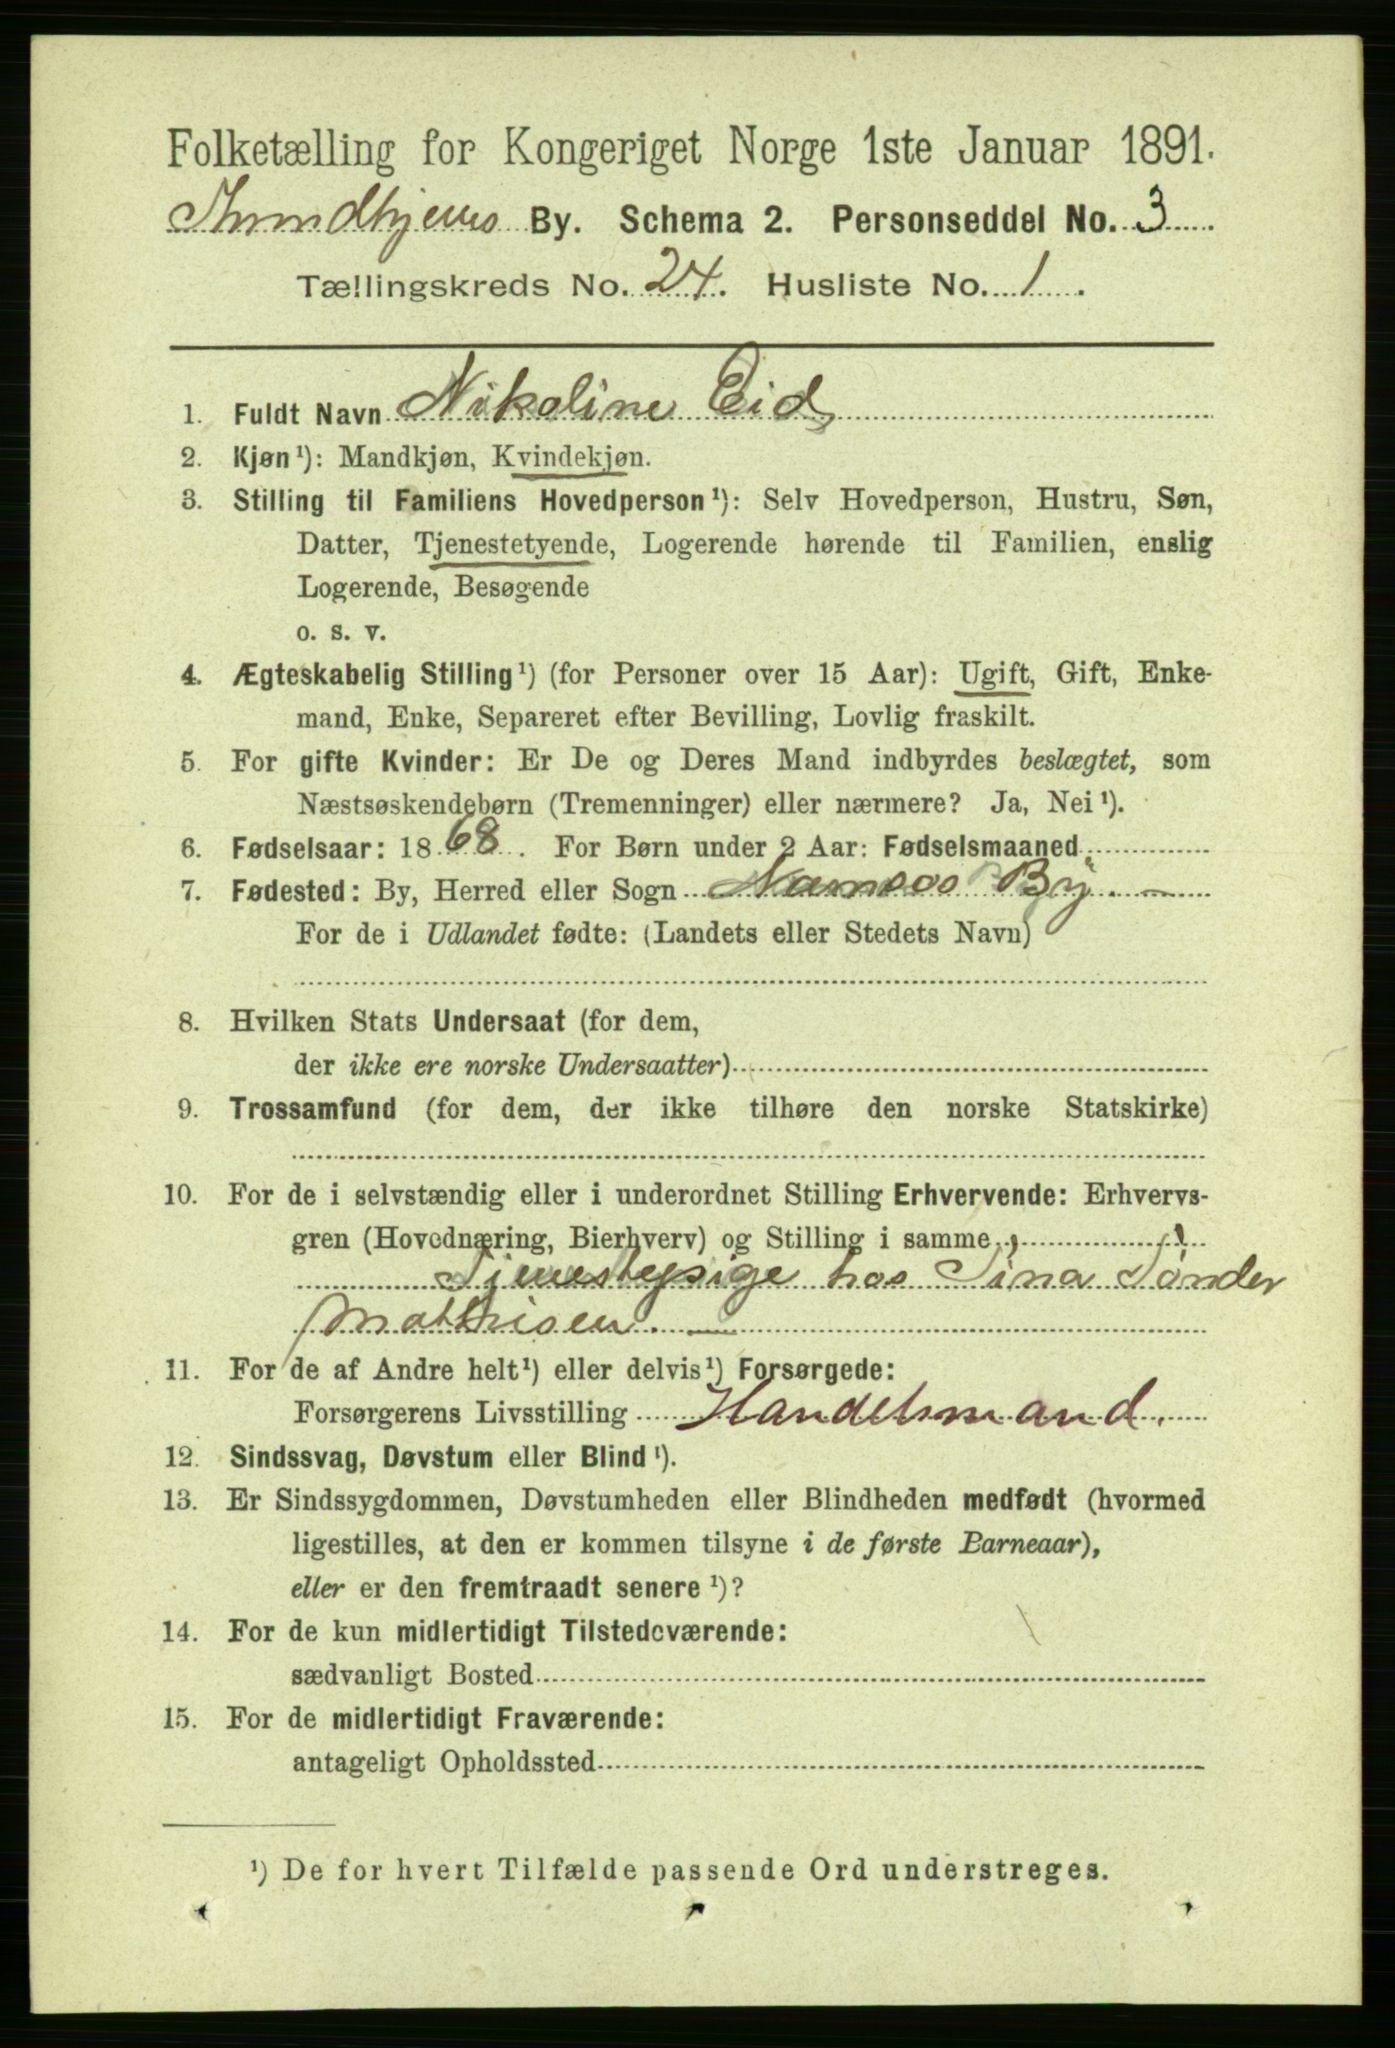 Folketælling for Kongeriget Norge 1ste Januar 1891.
Trondhjems By. Schema 2. Personseddel No. 3
Tællingskreds No. 24. Husliste No. 1.
1. Fuldt Navn Nikoline Eid
2. Kjøn¹): Mandkjøn, Kvindekjøn.
3. Stilling til Familiens Hovedperson¹): Selv Hovedperson, Hustru, Søn,
Datter, Tjenestetyende, Logerende hørende til Familien, enslig
Logerende, Besøgende
o. s. v.
4. Ægteskabelig Stilling¹) (for Personer over 15 Aar): Ugift, Gift, Enke-
mand, Enke, Separeret efter Bevilling, Lovlig fraskilt.
5. For gifte Kvinder: Er De og Deres Mand indbyrdes beslægtet, som
Næstsøskendebørn (Tremenninger) eller nærmere? Ja, Nei¹).
6. Fødselsaar: 1868. For Børn under 2 Aar: Fødselsmaaned
7. Fødested: By, Herred eller Sogn Namsos By. —
For de i Udlandet fødte: (Landets eller Stedets Navn)
8. Hvilken Stats Undersaat (for dem,
der ikke ere norske Undersaatter)
9. Trossamfund (for dem, der ikke tilhøre den norske Statskirke)
10. For de i selvstændig eller i underordnet Stilling Erhvervende: Erhvervs-
gren (Hovednæring, Bierhverv) og Stilling i samme
Tjenestepige hos Tina Sønder
Mathisen. —
11. For de af Andre helt¹) eller delvis¹) Forsørgede:
Forsørgerens Livsstilling Handelsmand.
12. Sindssvag, Døvstum eller Blind¹).
13. Er Sindssygdommen, Døvstumheden eller Blindheden medfødt (hvormed
ligestilles, at den er kommen tilsyne i de første Barneaar),
eller er den fremtraadt senere¹)?
14. For de kun midlertidigt Tilstedeværende:
sædvanligt Bosted
15. For de midlertidigt Fraværende:
antageligt Opholdssted
¹) De for hvert Tilfælde passende Ord understreges.